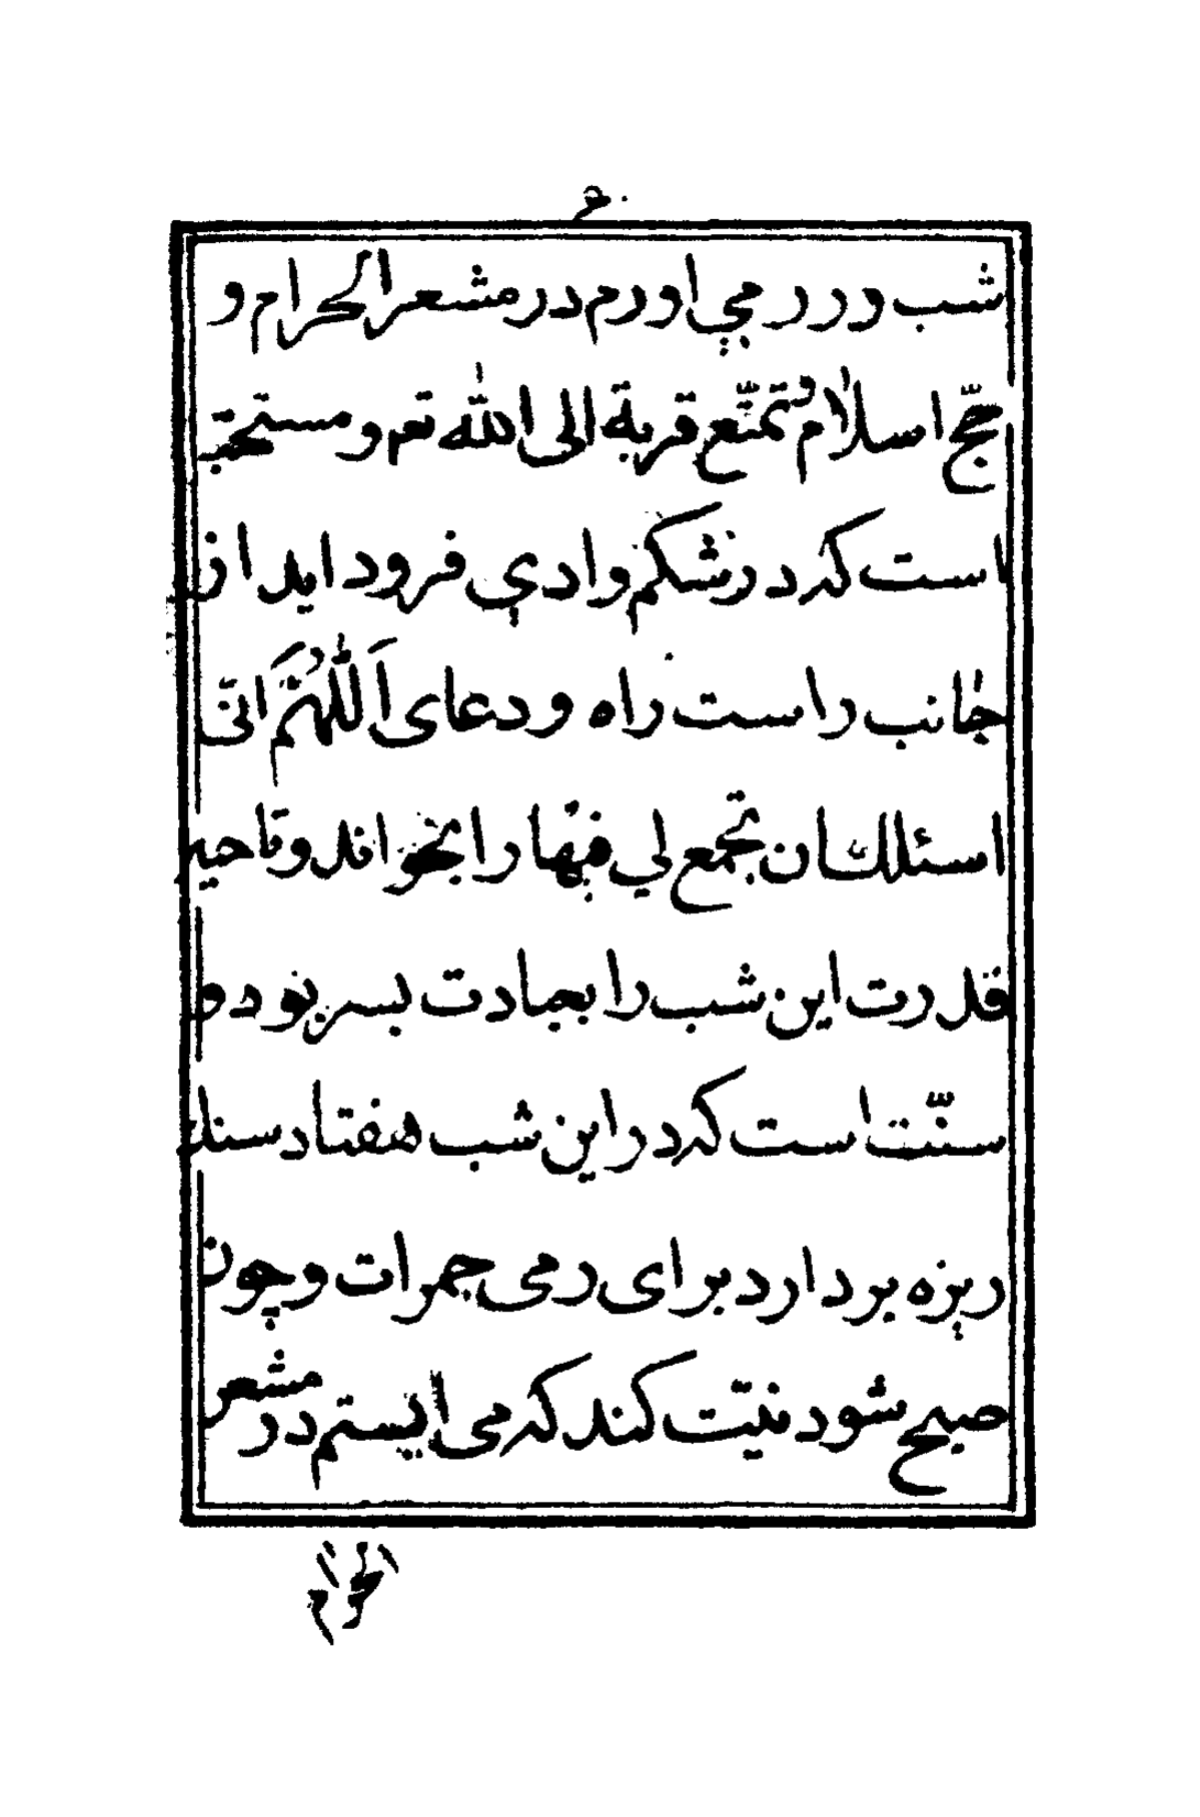 شب و ررمي اورم در مشعر الحرام و
حجّ اسلام و تمتّع قربة الى الله تعم و مستحب
است كه در شكم وادي فرود ايد از
جانب راست راه و دعاى اَللّهُمَّ انّى
اسئلك ان تجمع لي فيها را بخواند و تا حين
قدرت اين شب را بعبادت بسر بود و
سنّت است كه در اين شب هفتاد سنك
ريزه بردارد براى رمى جمرات و چون
صبح شود نيّت كند كه مى ايستم در مشعر
الحرام